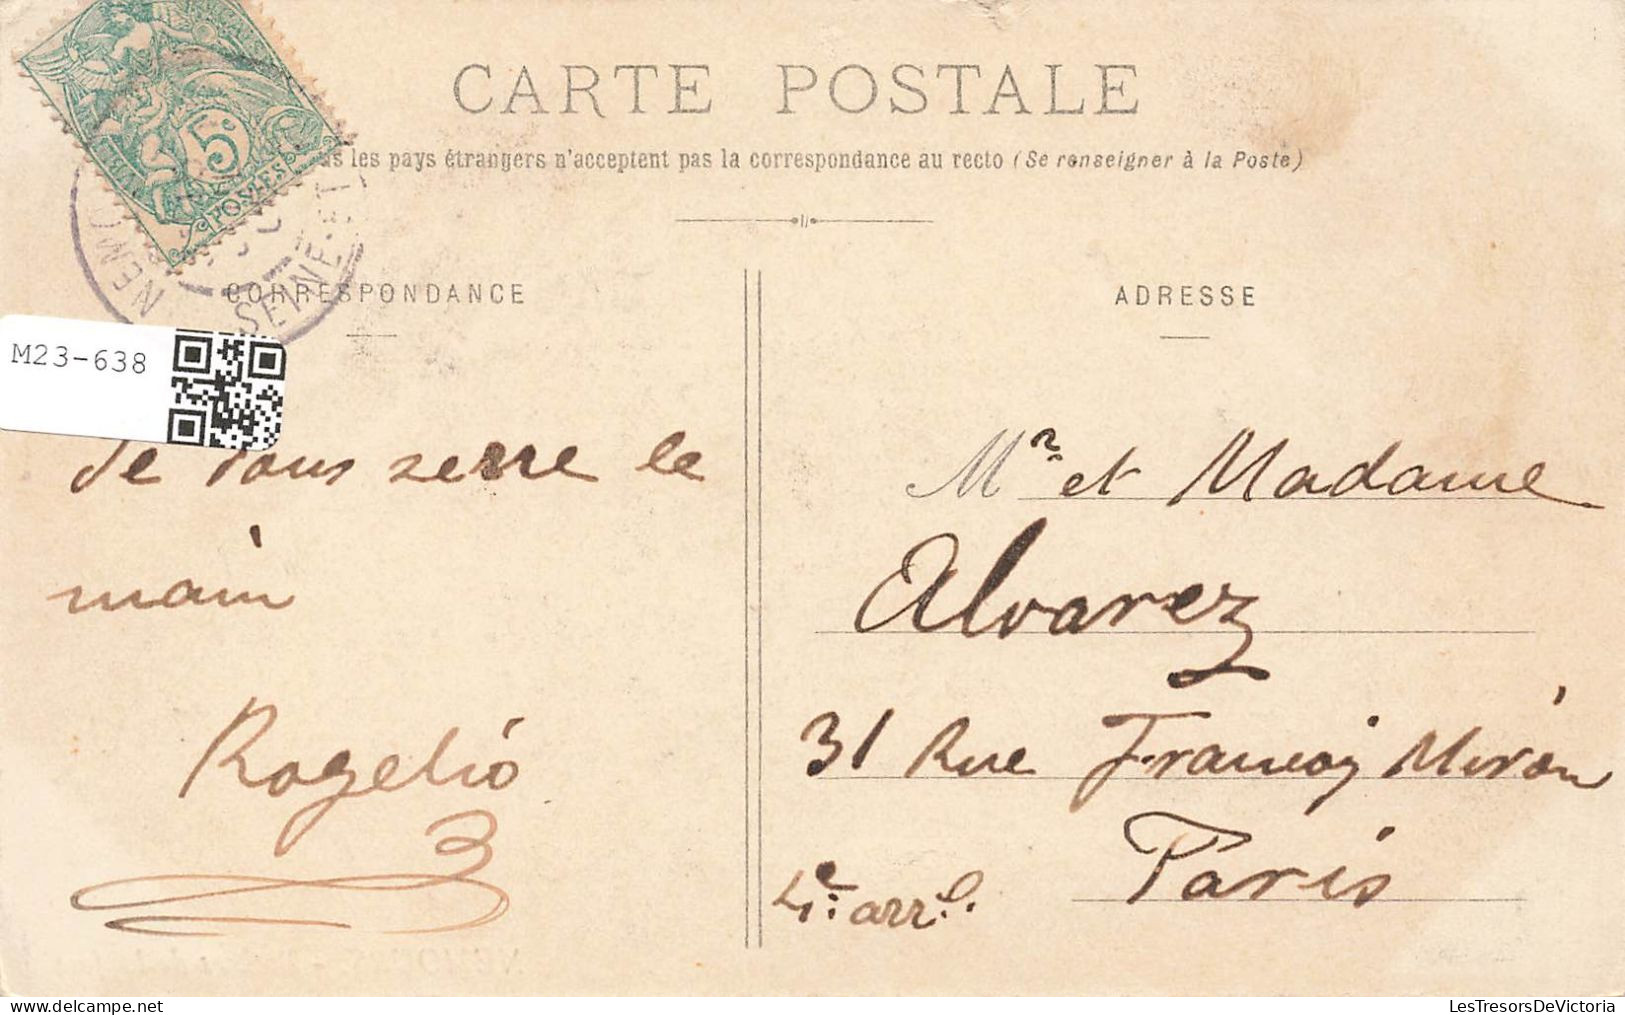 CARTE POSTALE
les pays étrangers n'acceptent pas la correspondance au recto (Se renseigner à la Poste)
5c
POSTES
NEM
SEINE-ET
CORRESPONDANCE
M23-638
Je vous serre le
main
Rogelió
ADRESSE
Mr. et Madame
Alvarez
31 Rue François Mirón
Paris
4e arrt.
LesTresorsDeVictoria